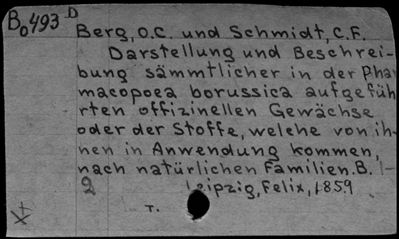 Bo493 D
Berg, O.C. und Schmidt, C.F.
Darstellung und Beschrei-
bung sämmtlicher in der Phar
macopoea borussica aufgefüh
rten offizinellen Gewächse
oder der Stoffe, welche von ih-
nen in Anwendung kommen,
nach natürlichen Familien. B. 1-
2 Leipzig, Felix, 1859
T.